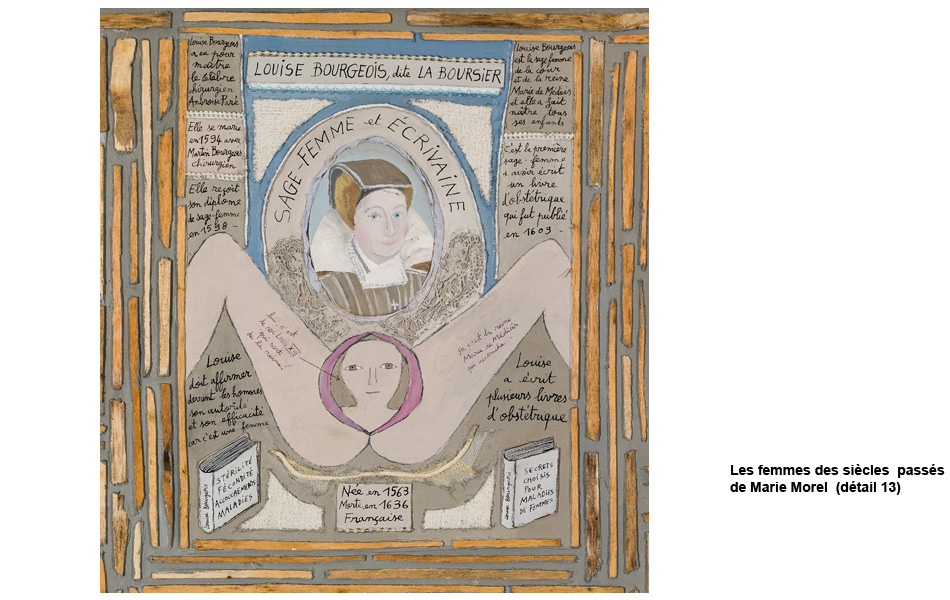 LOUISE BOURGEOIS, dite LA BOURSIER
SAGE-FEMME et ÉCRIVAINE
Louise Bourgeois
a eu pour
maître
le célèbre
chirurgien
Ambroise Paré
Elle se marie
en 1594 avec
Martin Bourgeois
chirurgien
Elle reçoit
son diplome
de sage-femme
en 1598 -
Louise Bourgeois
est la sage femme
de la cour
et de la reine
Marie de Médicis
et elle a fait
naître tous
ses enfants
C'est la première
sage-femme
a avoir écrit
un livre
d'obstétrique
qui fut publié
en 1609 -
lui, c'est
le roi Louis XIII
qui sort
de la reine!
ça c'est la reine
Marie de Médicis
qui accouche
Louise
doit affirmer
devant les hommes
son autorité
et son efficacité
car c'est une femme
Louise
a écrit
plusieurs livres
d'obstétrique
Louise Bourgeois
STÉRILITÉ
FÉCONDITÉ
ACCOUCHEMENTS
MALADIES
Née en 1563
Morte en 1636
Française
Louise Bourgeois
SECRETS
CHOISIS
POUR
MALADIES
DE FEMMES
Les femmes des siècles passés
de Marie Morel (détail 13)